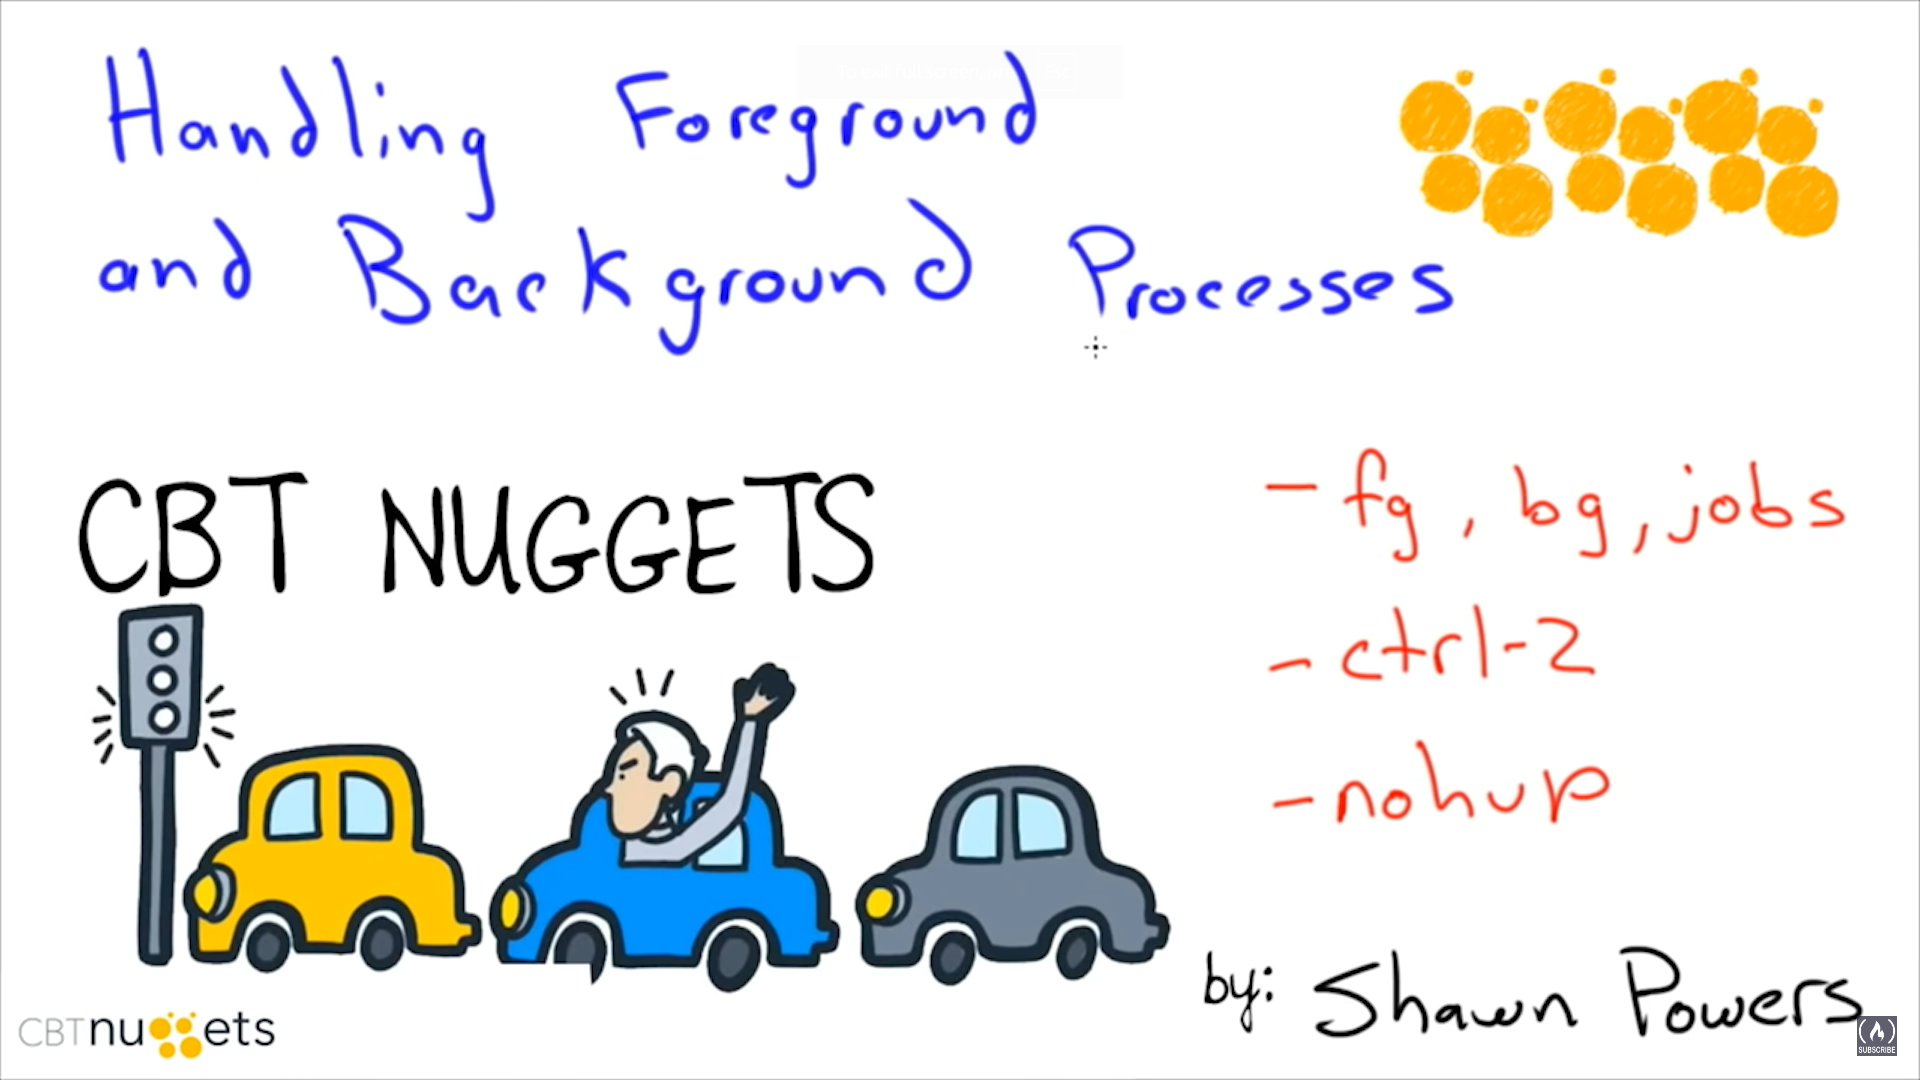 Handling Foreground
and Background Processes
CBT NUGGETS
- fg, bg, jobs
- ctrl-z
- nohup
by: Shawn Powers
CBTnuggets
SUBSCRIBE